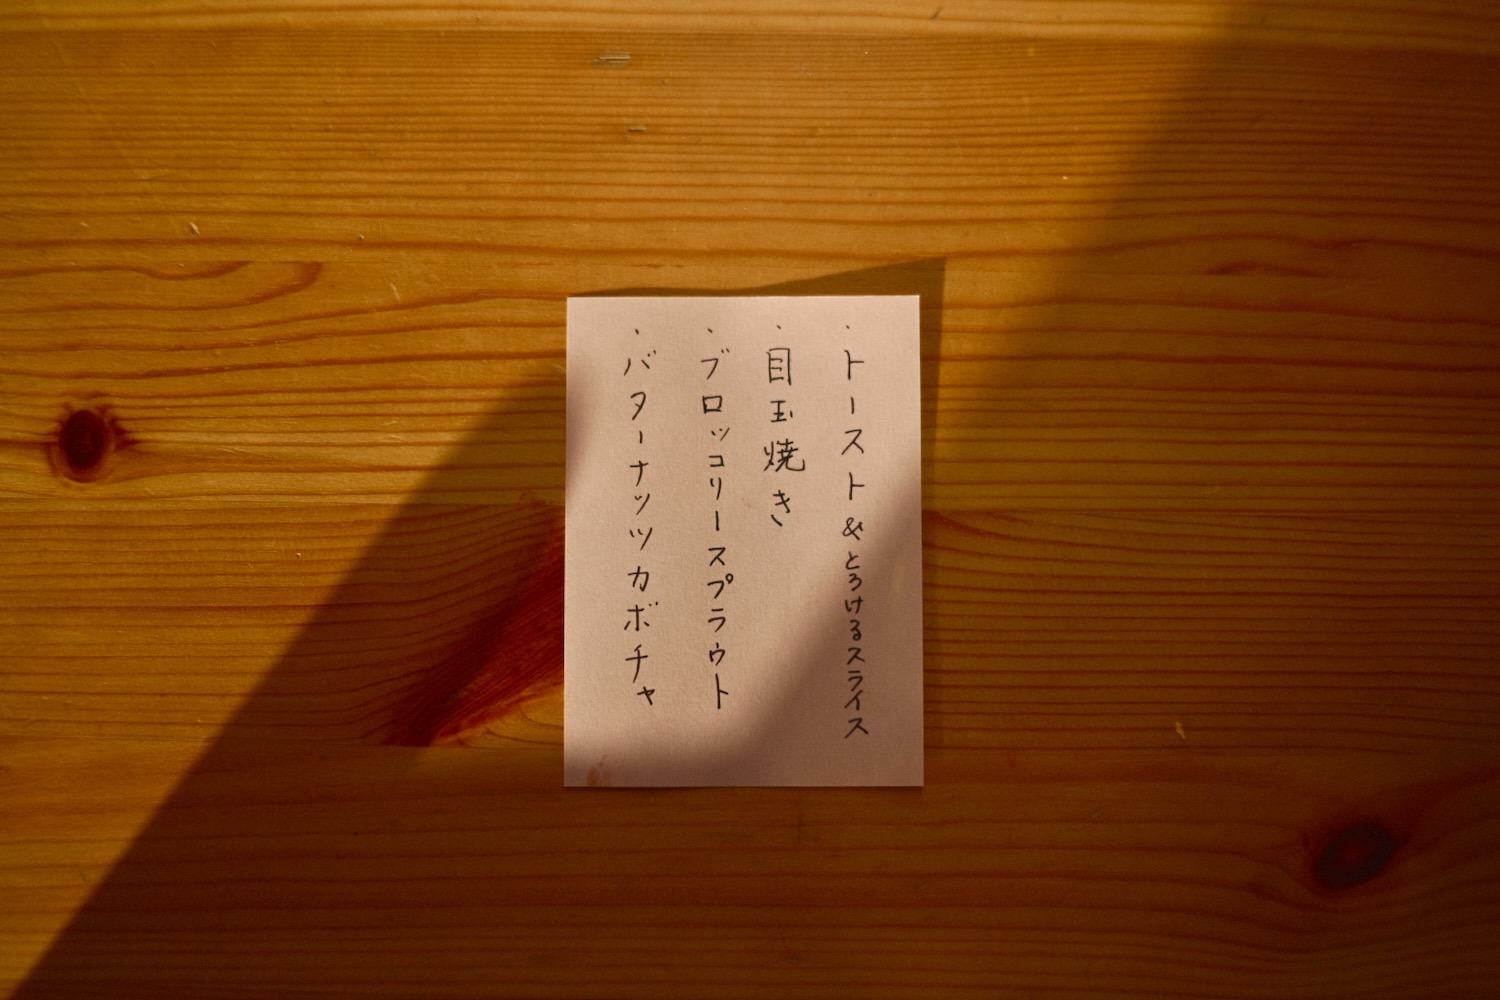 ・トースト&とろけるスライス
・目玉焼き
・ブロッコリースプラウト
・バターナッツカボチャ